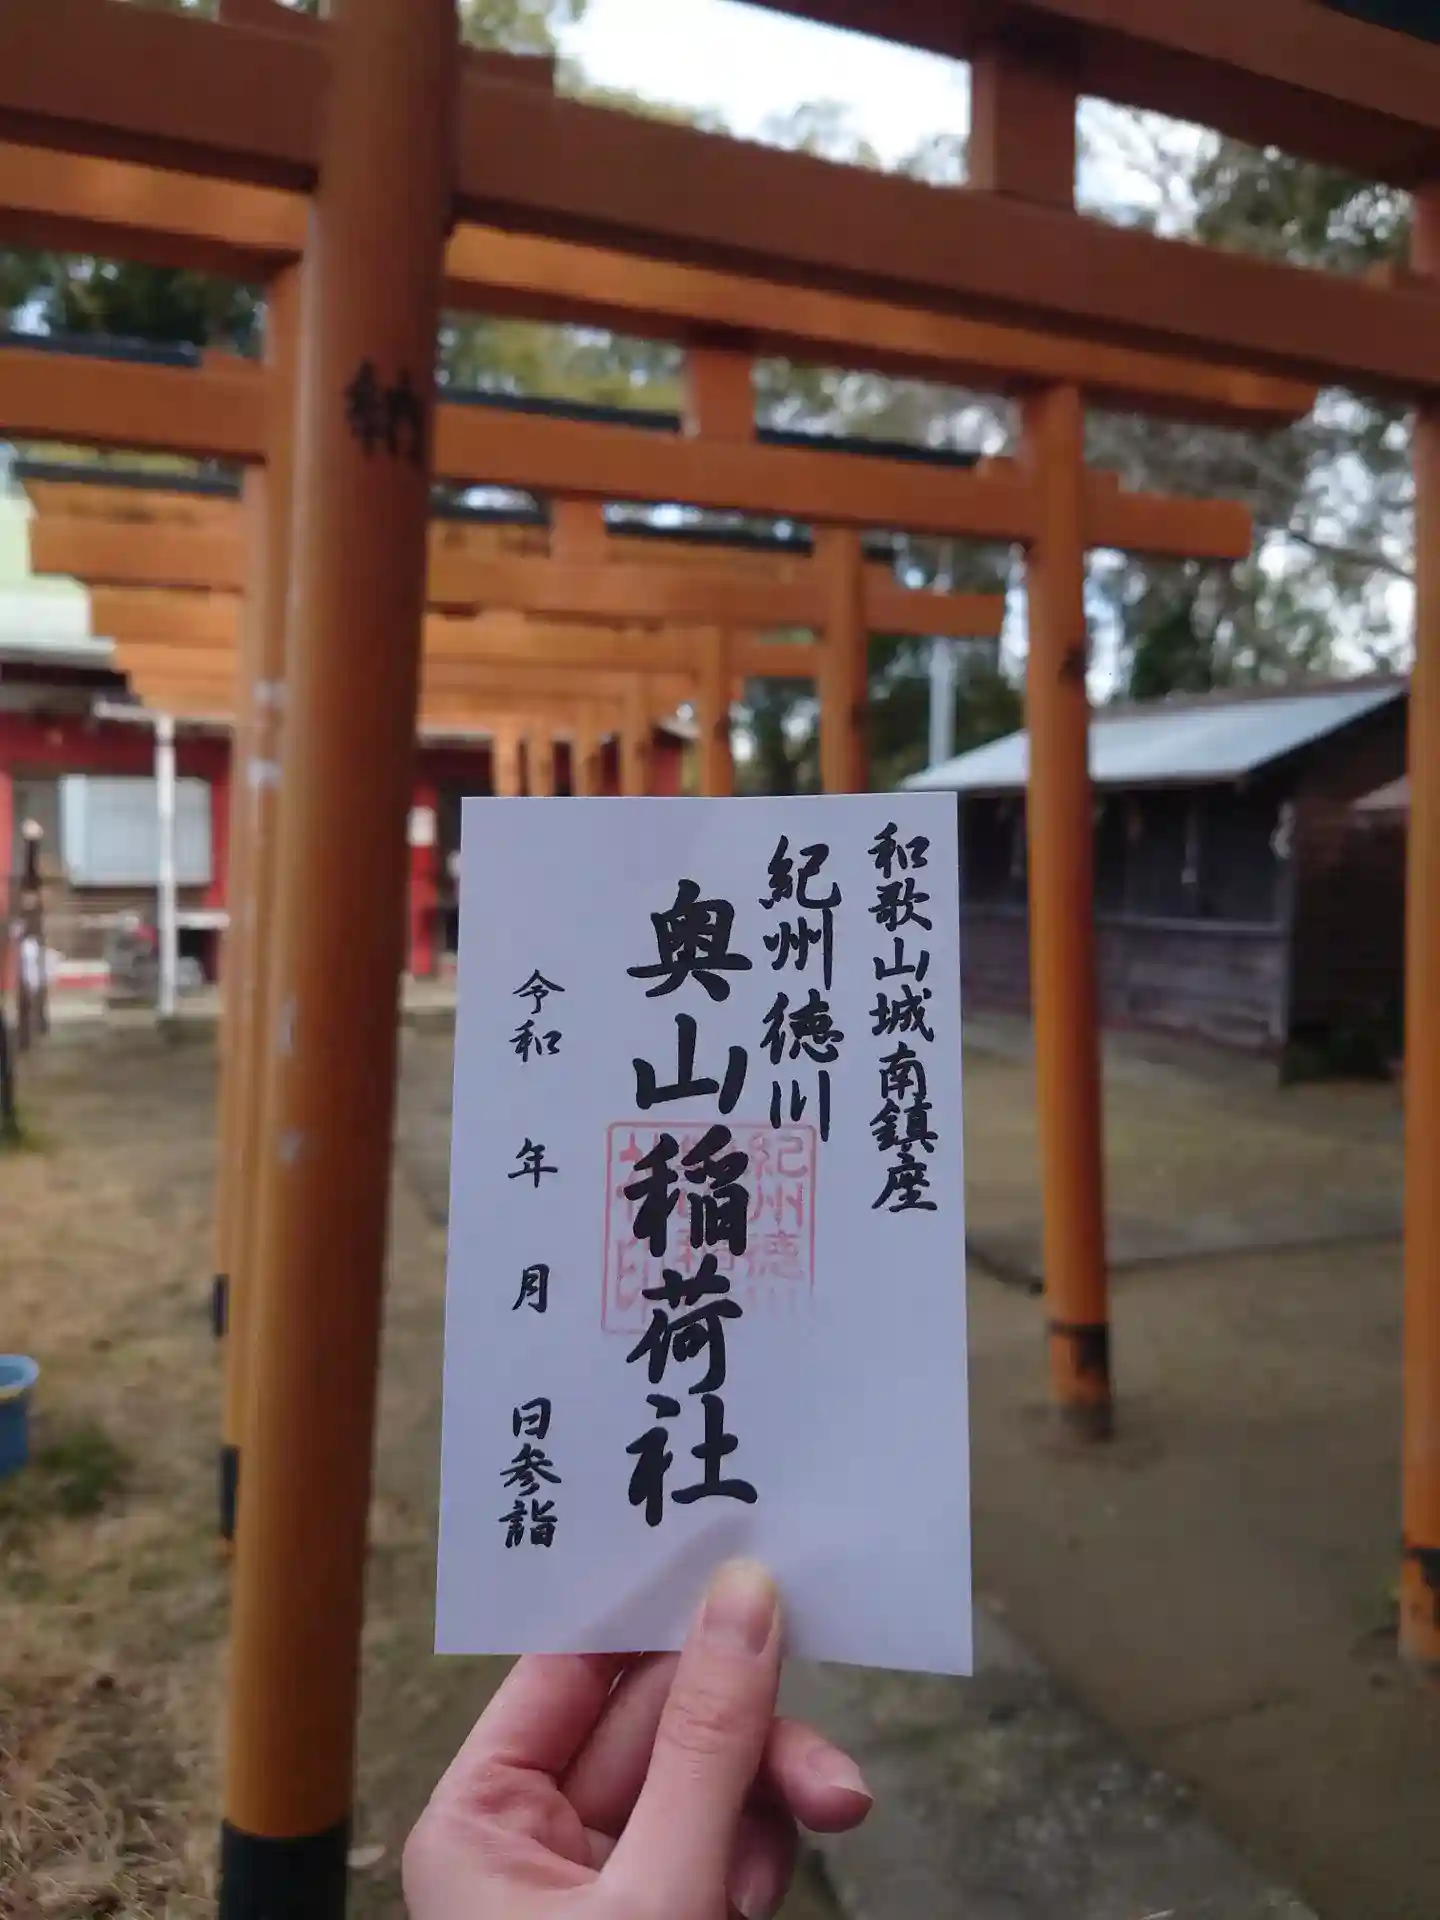 和歌山城南鎮座
紀州徳川
奥山稲荷社
令和 年 月 日参詣
紀州徳川
社印
納